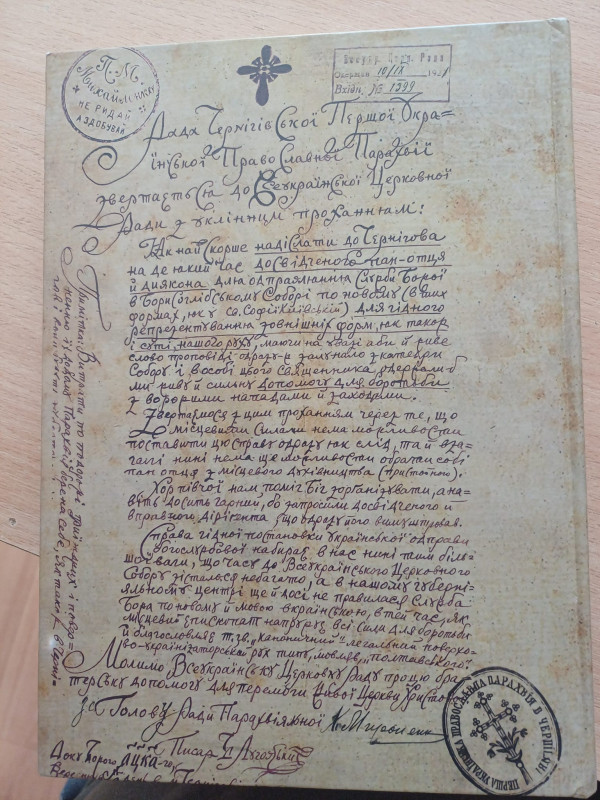 П.М.
Михайли нашу
НЕ РИДАЙ
А ЗДОБУВАЙ
Всеукр. Церк. Рада
Одержан 10/IX 1921
Вхідн. № 1399
Рада Чернігівської Першої Укра-
їнської Православної Парахвії
звертається до Всеукраїнської Церковної
Ради з уклінним проханням:
Як найскорше надіслати до Чернігова
на де який час досвідченого пан-отця
й диякона для одправляння Служби Божої
в Борисоглібському Соборі по новому (в тих
формах, як у св. Софії Київській) для гідного
репрезентування зовнішніх форм, як також
і суті нашого руху, маючи на увазі аби й живе
слово проповіді одразу-ж залунало з катедри
Собору і в особі цього священника одержали б
ми живу й сильну допомогу для боротьби
з ворожими нападами й заходами.
Звертаємося з цим проханням через те, що
місцевими силами нема можливости
поставити цю справу одразу як слід, та й вза-
галі нині нема ще можливости обрати собі
пан отця з місцевого духівництва (пристойного).
Хор півчої нам поміг Біг зорганізувати, а на-
віть досить гарний, бо запросили досвідченого й
вправного дірігента, що одразу його вимуштрував.
Справа гідної постановки української одправи
богослужбової набирає в нас нині тим біль-
шої ваги, що часу до Всеукраїнського Церковного
Собору зісталося небагато, а в нашому губерні-
яльному центрі ще й досі не правилася Служба
Божа по новому й мовою вкраїнською, в той час, як
місцевий епископат напружує всі сили для боротьби
й благословляє т.зв. „каноничний“ легальний поверхо-
во-українізаторський рух типу, мовляв, „полтавського“.
Молимо Всеукраїнську Церковну Раду про цю бра-
терську допомогу для перемоги Живої Церкви Христо-
за Голову Ради Парахвіяльної
Писар
Примітка: Витрати по подорожі
Парахвія бере на себе,
ПЕРША УКРАЇНСЬКА ПРАВОСЛАВНА ПАРАХВІЯ В ЧЕРНІГОВІ